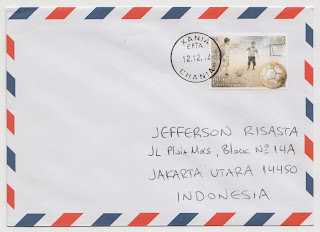 ΧΑΝΙΑ
ΕΡΤΑ
12.12.
CHANIA
JEFFERSON RISASTA
JL Pluit Mas, Block Nº 14A
JAKARTA UTARA 14450
INDONESIA